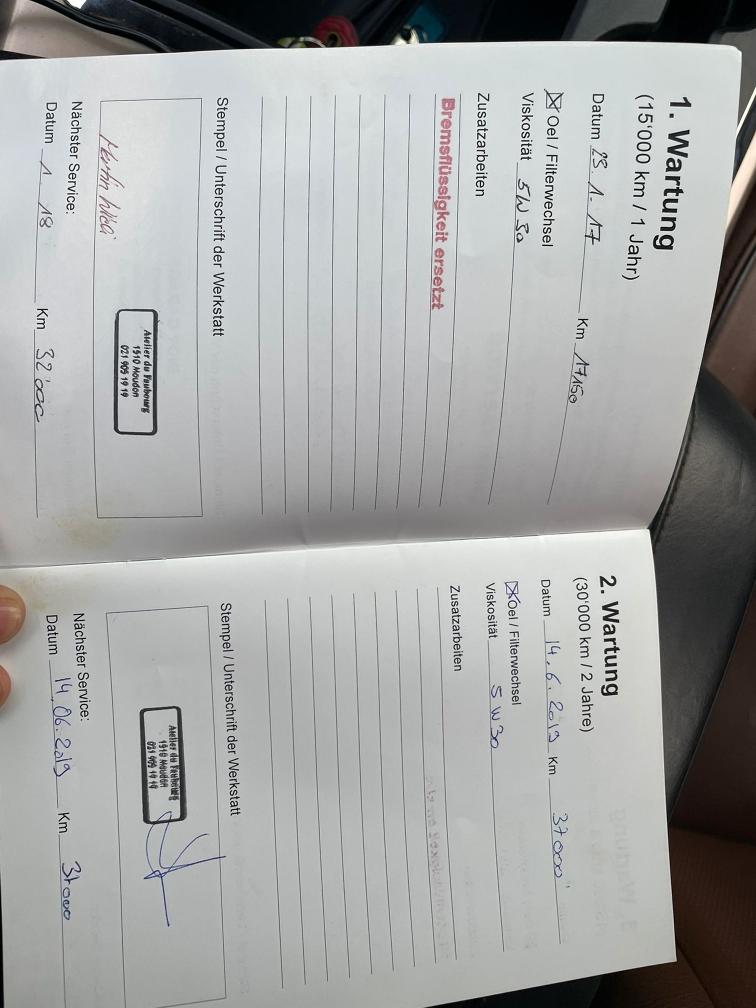 1. Wartung
(15'000 km / 1 Jahr)
Datum 23. 1. 17 Km 17150
☒ Oel / Filterwechsel
Viskosität 5W30
Zusatzarbeiten
Bremsflüssigkeit ersetzt
Stempel / Unterschrift der Werkstatt
Atelier du Faubourg
1510 Moudon
021 905 19 19
Nächster Service:
Datum 1. 18 Km 32'000
2. Wartung
(30'000 km / 2 Jahre)
Datum 14.6.2019 Km 37000
☒ Oel / Filterwechsel
Viskosität 5W30
Zusatzarbeiten
Stempel / Unterschrift der Werkstatt
Atelier du Faubourg
1510 Moudon
021 905 19 19
Nächster Service:
Datum 14.06.2019 Km 37000